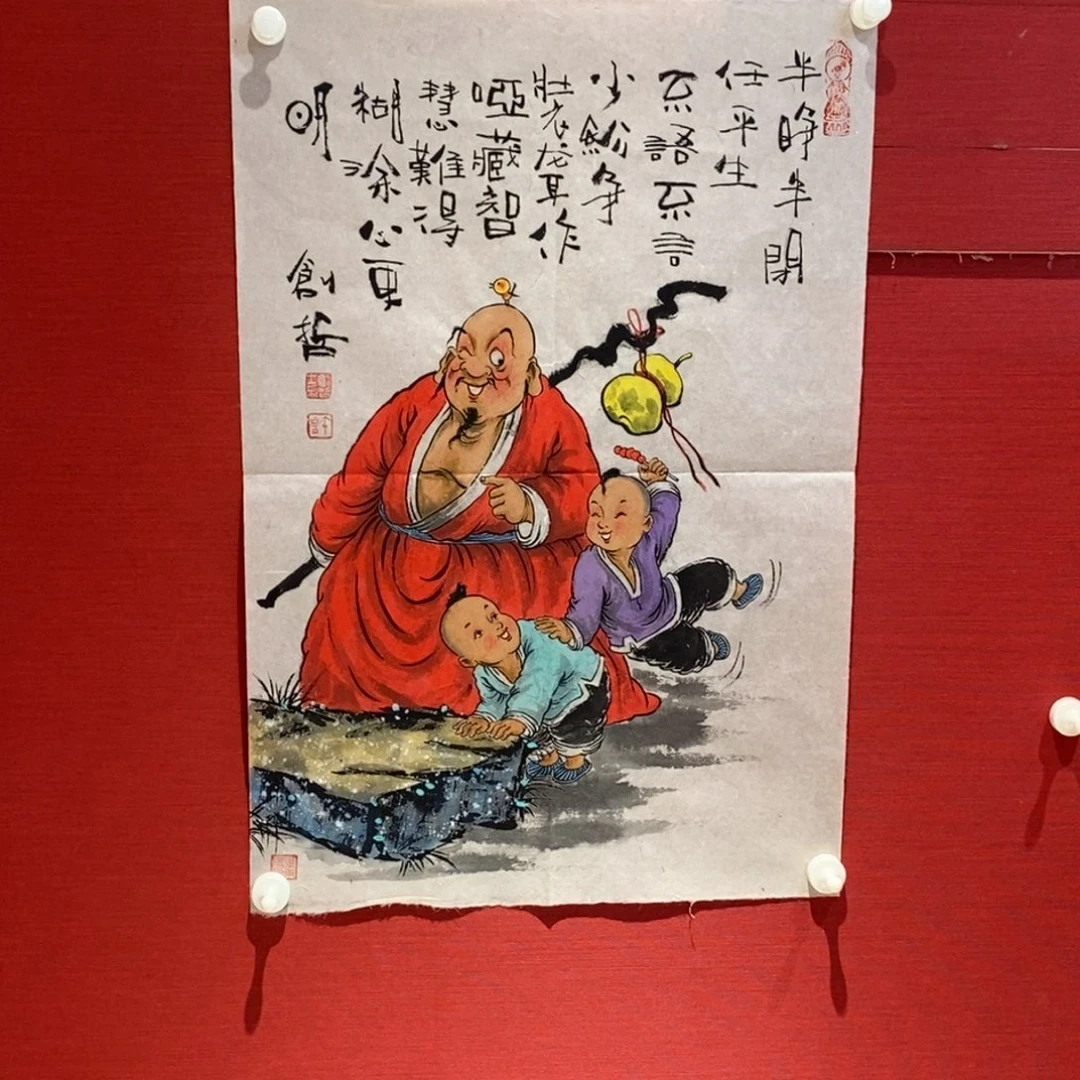 半睁半閉
任平生
不語不言
少紛争
装聋作
啞藏智
慧難得
糊涂心更
明
創哲